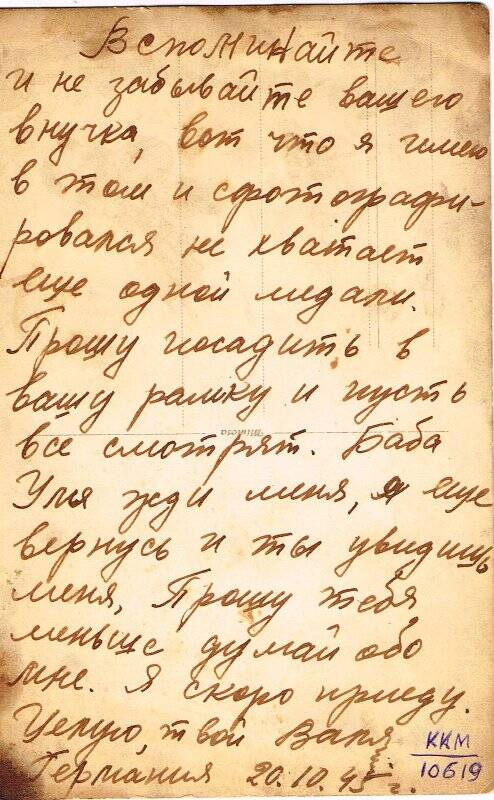 Вспоминайте
и не забывайте вашего
внучка, вот что я имею
в том и сфотографи-
ровался не хватает
еще одной медали.
Прошу посадить в
вашу рамку и пусть
все смотрят. Баба
Уля жди меня, я еще
вернусь и ты увидишь
меня, Прошу тебя
меньше думай обо
мне. Я скоро приеду.
Целую, твой Валя
Германия 20.10.45 г.
ККМ
10619
Mimosa